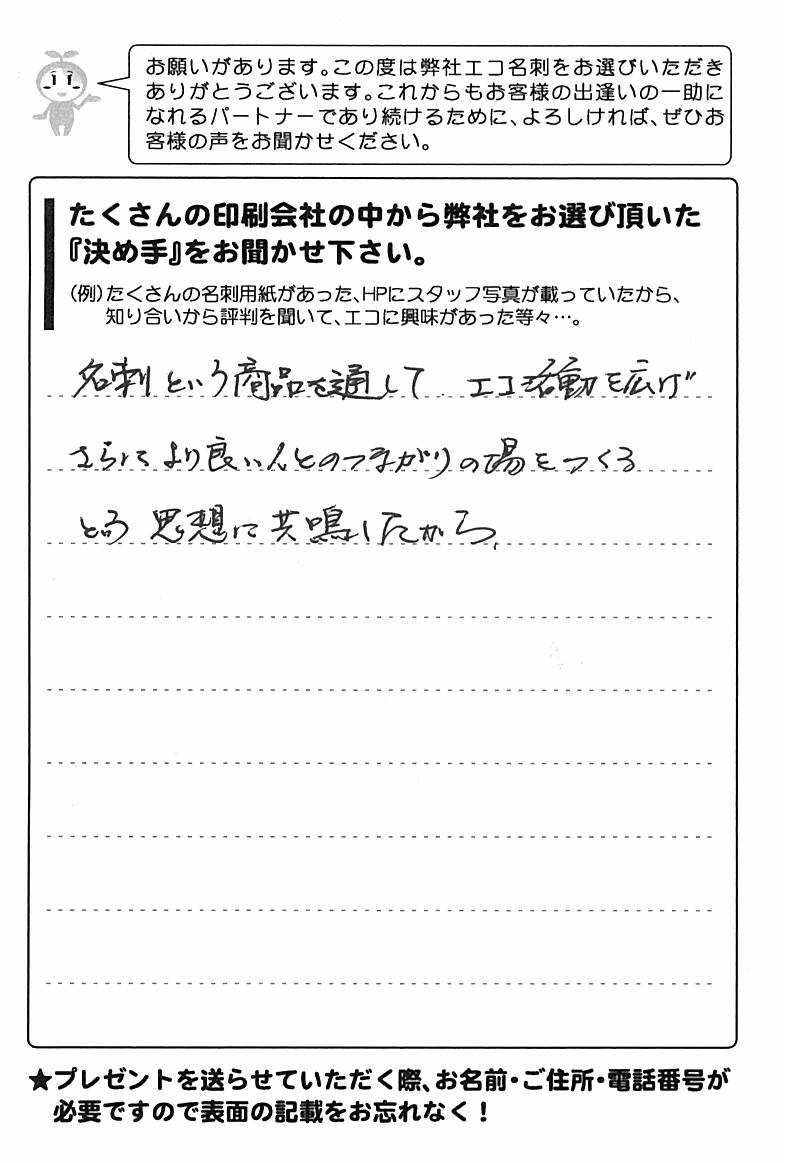 お願いがあります。この度は弊社エコ名刺をお選びいただき
ありがとうございます。これからもお客様の出逢いの一助に
なれるパートナーであり続けるために、よろしければ、ぜひお
客様の声をお聞かせください。
たくさんの印刷会社の中から弊社をお選び頂いた
『決め手』をお聞かせ下さい。
(例)たくさんの名刺用紙があった、HPにスタッフ写真が載っていたから、
知り合いから評判を聞いて、エコに興味があった等々…。
名刺という商品を通して エコ活動を広げ
さらにより良い人とのつながりの場をつくる
という思想に共鳴したから、
★プレゼントを送らせていただく際、お名前・ご住所・電話番号が
必要ですので表面の記載をお忘れなく!